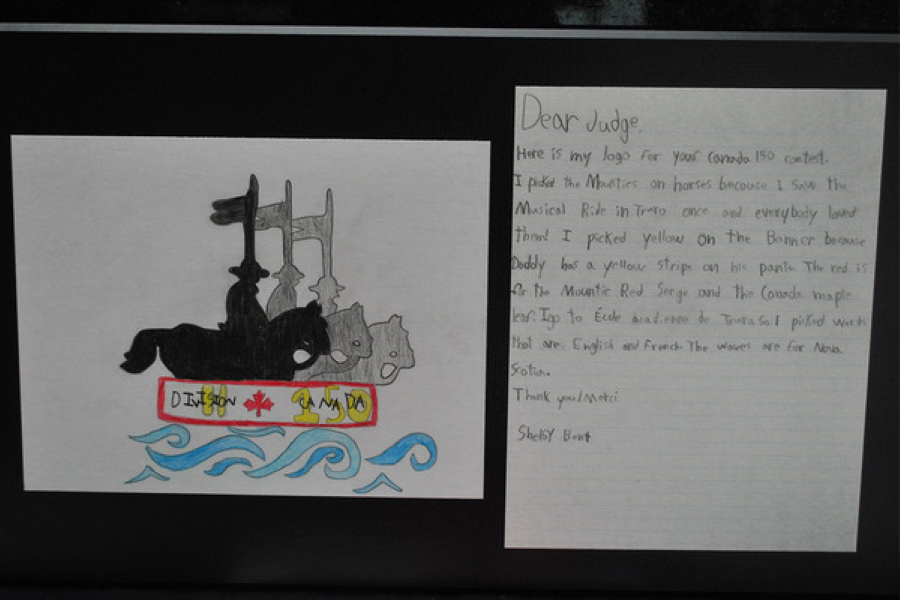 DIVISION H CANADA 150
Dear Judge,
Here is my logo for your Canada 150 contest.
I picked the Mounties on horses because I saw the
Musical Ride in Truro once and everybody loved
them! I picked yellow on the Banner because
Daddy has a yellow stripe on his pants. The red is
for the Mountie Red Serge and the Canada maple
leaf. I go to École acadienne de Truro so I picked words
that are English and French. The waves are for Nova
Scotia.
Thank you/Merci
Shelsy